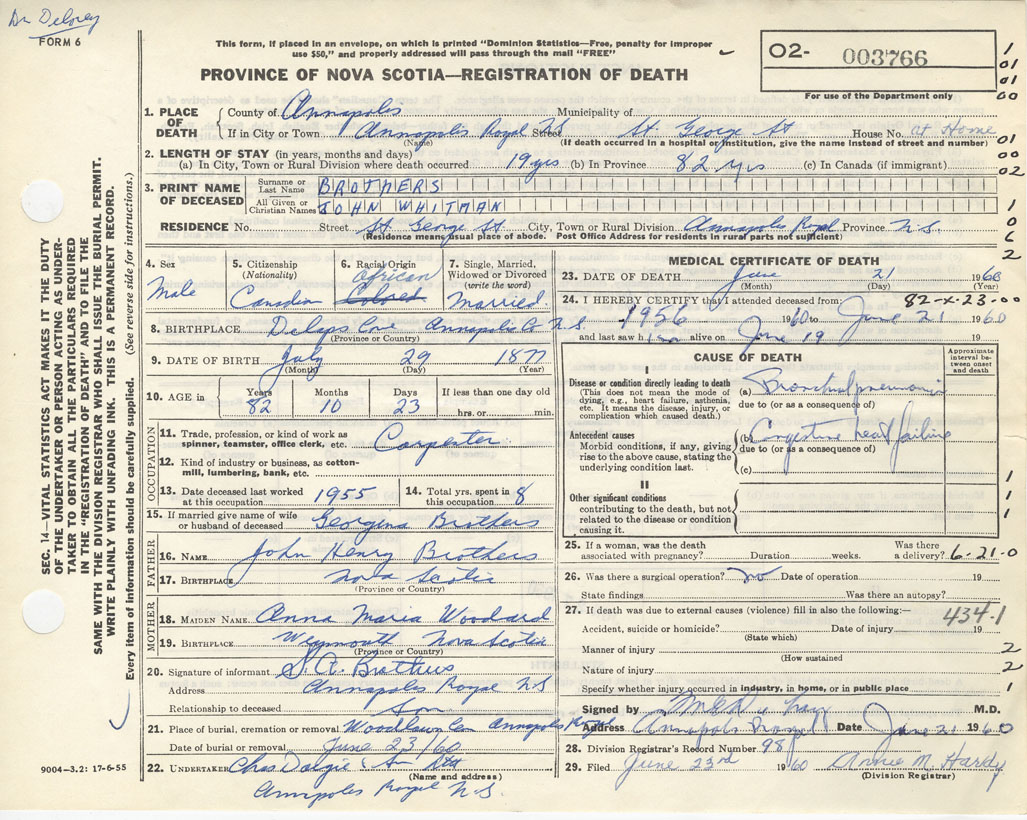 Dr Delorey
FORM 6
This form, if placed in an envelope, on which is printed "Dominion Statistics—Free, penalty for improper
use $50," and properly addressed will pass through the mail "FREE"
PROVINCE OF NOVA SCOTIA—REGISTRATION OF DEATH
O2- 003766
For use of the Department only
1. PLACE OF DEATH
County of Annapolis Municipality of
If in City or Town Annapolis Royal NS Street St. George St House No. at Home
(Name) (If death occurred in a hospital or institution, give the name instead of street and number)
2. LENGTH OF STAY (in years, months and days)
(a) In City, Town or Rural Division where death occurred 19 yrs (b) In Province 82 yrs (c) In Canada (if immigrant)
3. PRINT NAME OF DECEASED
Surname or Last Name BROTHERS
All Given or Christian Names JOHN WHITMAN
RESIDENCE No. Street St. George St. City, Town or Rural Division Annapolis Royal Province N.S.
(Residence means usual place of abode. Post Office Address for residents in rural parts not sufficient)
4. Sex Male
5. Citizenship (Nationality) Canadian
6. Racial Origin African Colored
7. Single, Married, Widowed or Divorced (write the word) Married.
8. BIRTHPLACE Delaps Cove Annapolis Co N.S.
(Province or Country)
9. DATE OF BIRTH July 29 1877
(Month) (Day) (Year)
10. AGE in Years 82 Months 10 Days 23 If less than one day old hrs. or min.
OCCUPATION
11. Trade, profession, or kind of work as spinner, teamster, office clerk, etc. Carpenter
12. Kind of industry or business, as cotton-mill, lumbering, bank, etc.
13. Date deceased last worked at this occupation 1955
14. Total yrs. spent in this occupation 8
15. If married give name of wife or husband of deceased Georgina Brothers
FATHER
16. NAME John Henry Brothers
17. BIRTHPLACE Nova Scotia
(Province or Country)
MOTHER
18. MAIDEN NAME Anna Maria Woodard
19. BIRTHPLACE Weymouth Nova Scotia
(Province or Country)
20. Signature of informant S. A. Brothers
Address Annapolis Royal N S
Relationship to deceased Son
21. Place of burial, cremation or removal Woodlawn Cem Annapolis Royal
Date of burial or removal June 23/60
22. UNDERTAKER Chas Dargie & Son Ltd
(Name and address)
Annapolis Royal N.S.
MEDICAL CERTIFICATE OF DEATH
23. DATE OF DEATH June 21 1960
(Month) (Day) (Year)
82-X-23-00
24. I HEREBY CERTIFY that I attended deceased from:
1956 1960 to June 21 1960
and last saw him alive on June 19 19
CAUSE OF DEATH
Approximate interval between onset and death
I
Disease or condition directly leading to death
(This does not mean the mode of dying, e.g., heart failure, asthenia, etc. It means the disease, injury, or complication which caused death.)
(a) Bronchial pneumonia
due to (or as a consequence of)
Antecedent causes
Morbid conditions, if any, giving rise to the above cause, stating the underlying condition last.
(b) Congestive heart failure
due to (or as a consequence of)
(c)
II
Other significant conditions
contributing to the death, but not related to the disease or condition causing it.
25. If a woman, was the death associated with pregnancy? Duration weeks. Was there a delivery? 6-21-0
26. Was there a surgical operation? no Date of operation 19
State findings Was there an autopsy?
27. If death was due to external causes (violence) fill in also the following:— 434.1
Accident, suicide or homicide? Date of injury 19
(State which)
Manner of injury
(How sustained)
Nature of injury
Specify whether injury occurred in industry, in home, or in public place
Signed by M.D.
Address Annapolis Royal Date June 21 1960
28. Division Registrar's Record Number 98
29. Filed June 23rd 1960 Annie M. Hardy
(Division Registrar)
SEC. 14—VITAL STATISTICS ACT MAKES IT THE DUTY
OF THE UNDERTAKER OR PERSON ACTING AS UNDER-
TAKER TO OBTAIN ALL THE PARTICULARS REQUIRED
IN THE "REGISTRATION OF DEATH" AND FILE THE
SAME WITH THE DIVISION REGISTRAR WHO SHALL ISSUE THE BURIAL PERMIT.
WRITE PLAINLY WITH UNFADING INK. THIS IS A PERMANENT RECORD.
Every item of information should be carefully supplied. (See reverse side for instructions.)
9004-3.2: 17-6-55
1
01
01
00
01
00
02
1
0
6
2
1
1
1
2
2
1